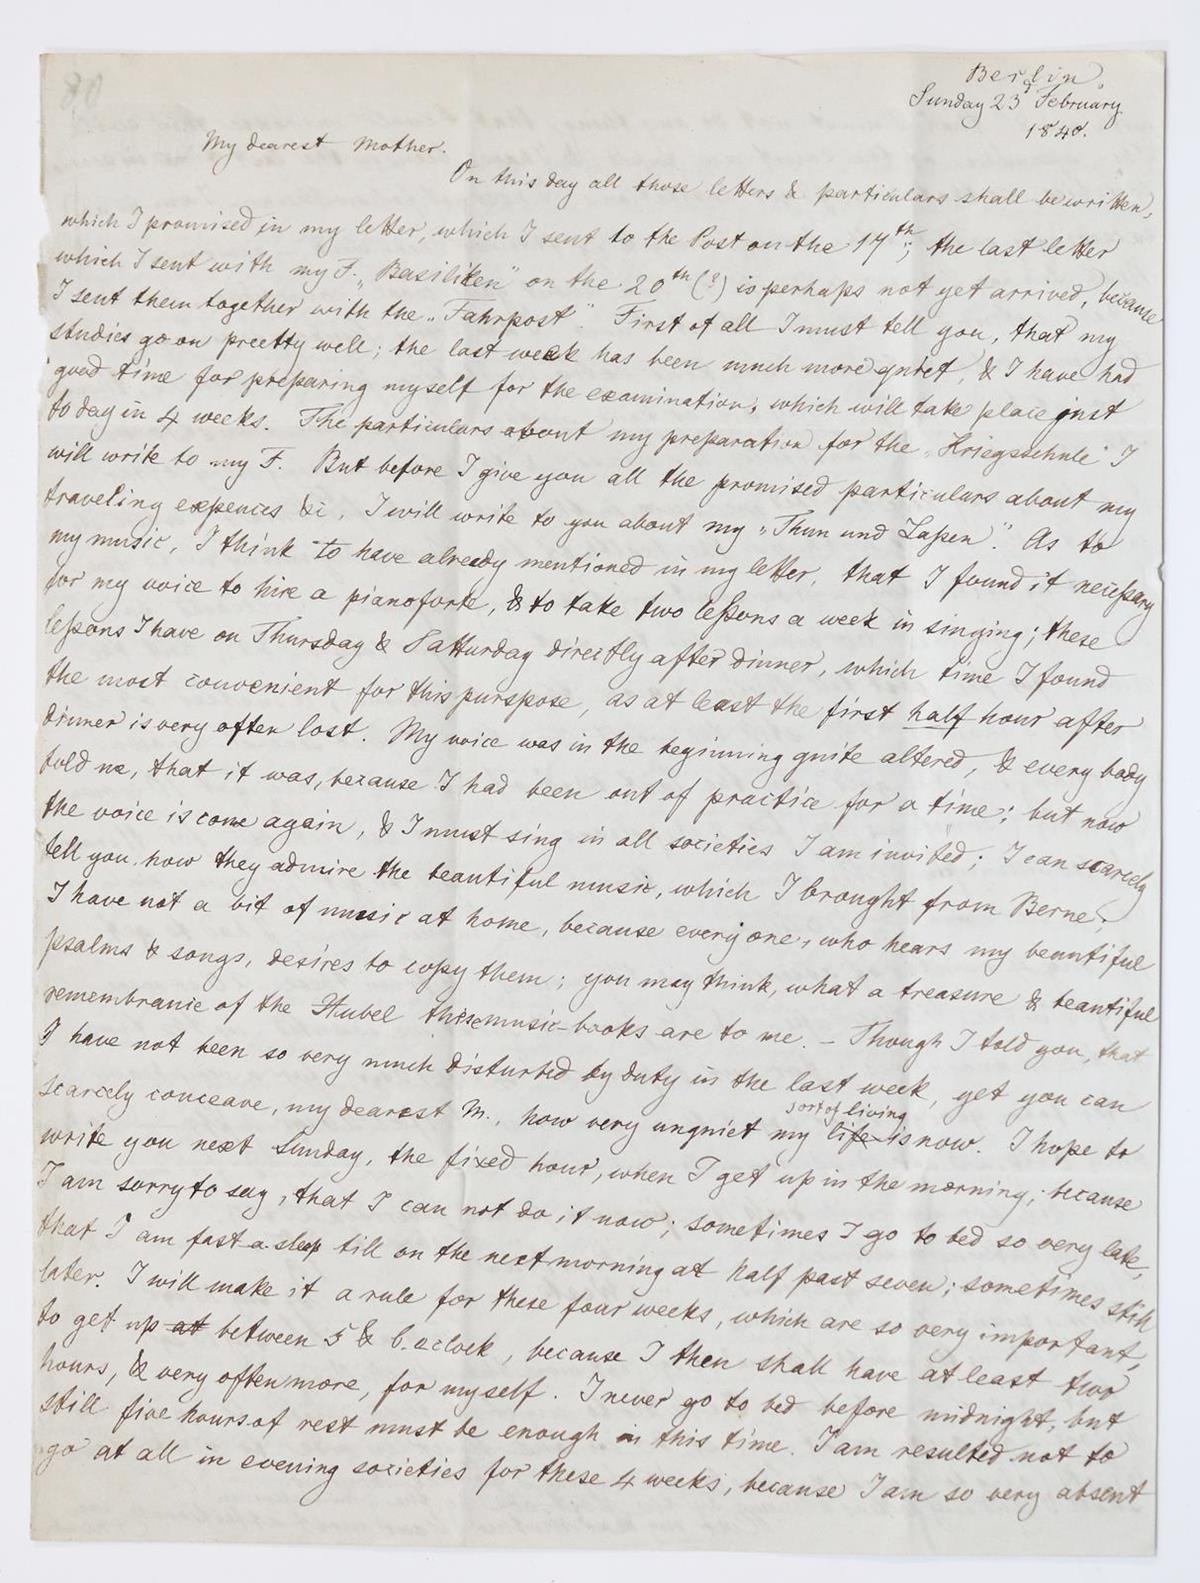 Berlin,
Sunday 23d February
1840.
My dearest Mother.
On this day all those letters & particulars shall be written,
which I promised in my letter, which I sent to the Post on the 17th; the last letter
which I sent with my F. „Basiliken" on the 20th (?) is perhaps not yet arrived, because
I sent them together with the „Fahrpost". First of all I must tell you, that my
studies go on preetty well; the last week has been much more quiet, & I have had
good time for preparing myself for the examination, which will take place just
to day in 4 weeks. The particulars about my preparation for the „Kriegsschule" I
will write to my F. But before I give you all the promised particulars about my
traveling expences &c, I will write to you about my „Thun und Laßen". As to
my music, I think to have already mentioned in my letter, that I found it necessary
for my voice to hire a pianoforte, & to take two leßons a week in singing; these
leßons I have on Thursday & Satturday directly after dinner, which time I found
the most convenient for this purspose, as at least the first half hour after
dinner is very often lost. My voice was in the beginning quite altered, & every body
told me, that it was, because I had been out of practice for a time; but now
the voice is come again, & I must sing in all societies I am invited; I can scarcely
tell you how they admire the beautiful music, which I brought from Berne;
I have not a bit of music at home, because every one, who hears my beautiful
psalms & songs, desires to copy them; you may think, what a treasure & beautiful
remembrance of the Hubel these music-books are to me. – Though I told you, that
I have not been so very much disturbed by duty in the last week, yet you can
scarcely conceave, my dearest M., how very unquiet my life sort of living is now. I hope to
write you next Sunday, the fixed hour, when I get up in the morning; because
I am sorry to say, that I can not do it now; sometimes I go to bed so very late,
that I am fast a sleep till on the next morning at half past seven; sometimes still
later. I will make it a rule for these four weeks, which are so very important,
to get up at between 5 & 6. oclock, because I then shall have at least two
hours, & very often more, for myself. I never go to bed before midnight, but
still five hours of rest must be enough in this time. I am resulted not to
go at all in evening societies for these 4 weeks, because I am so very absent